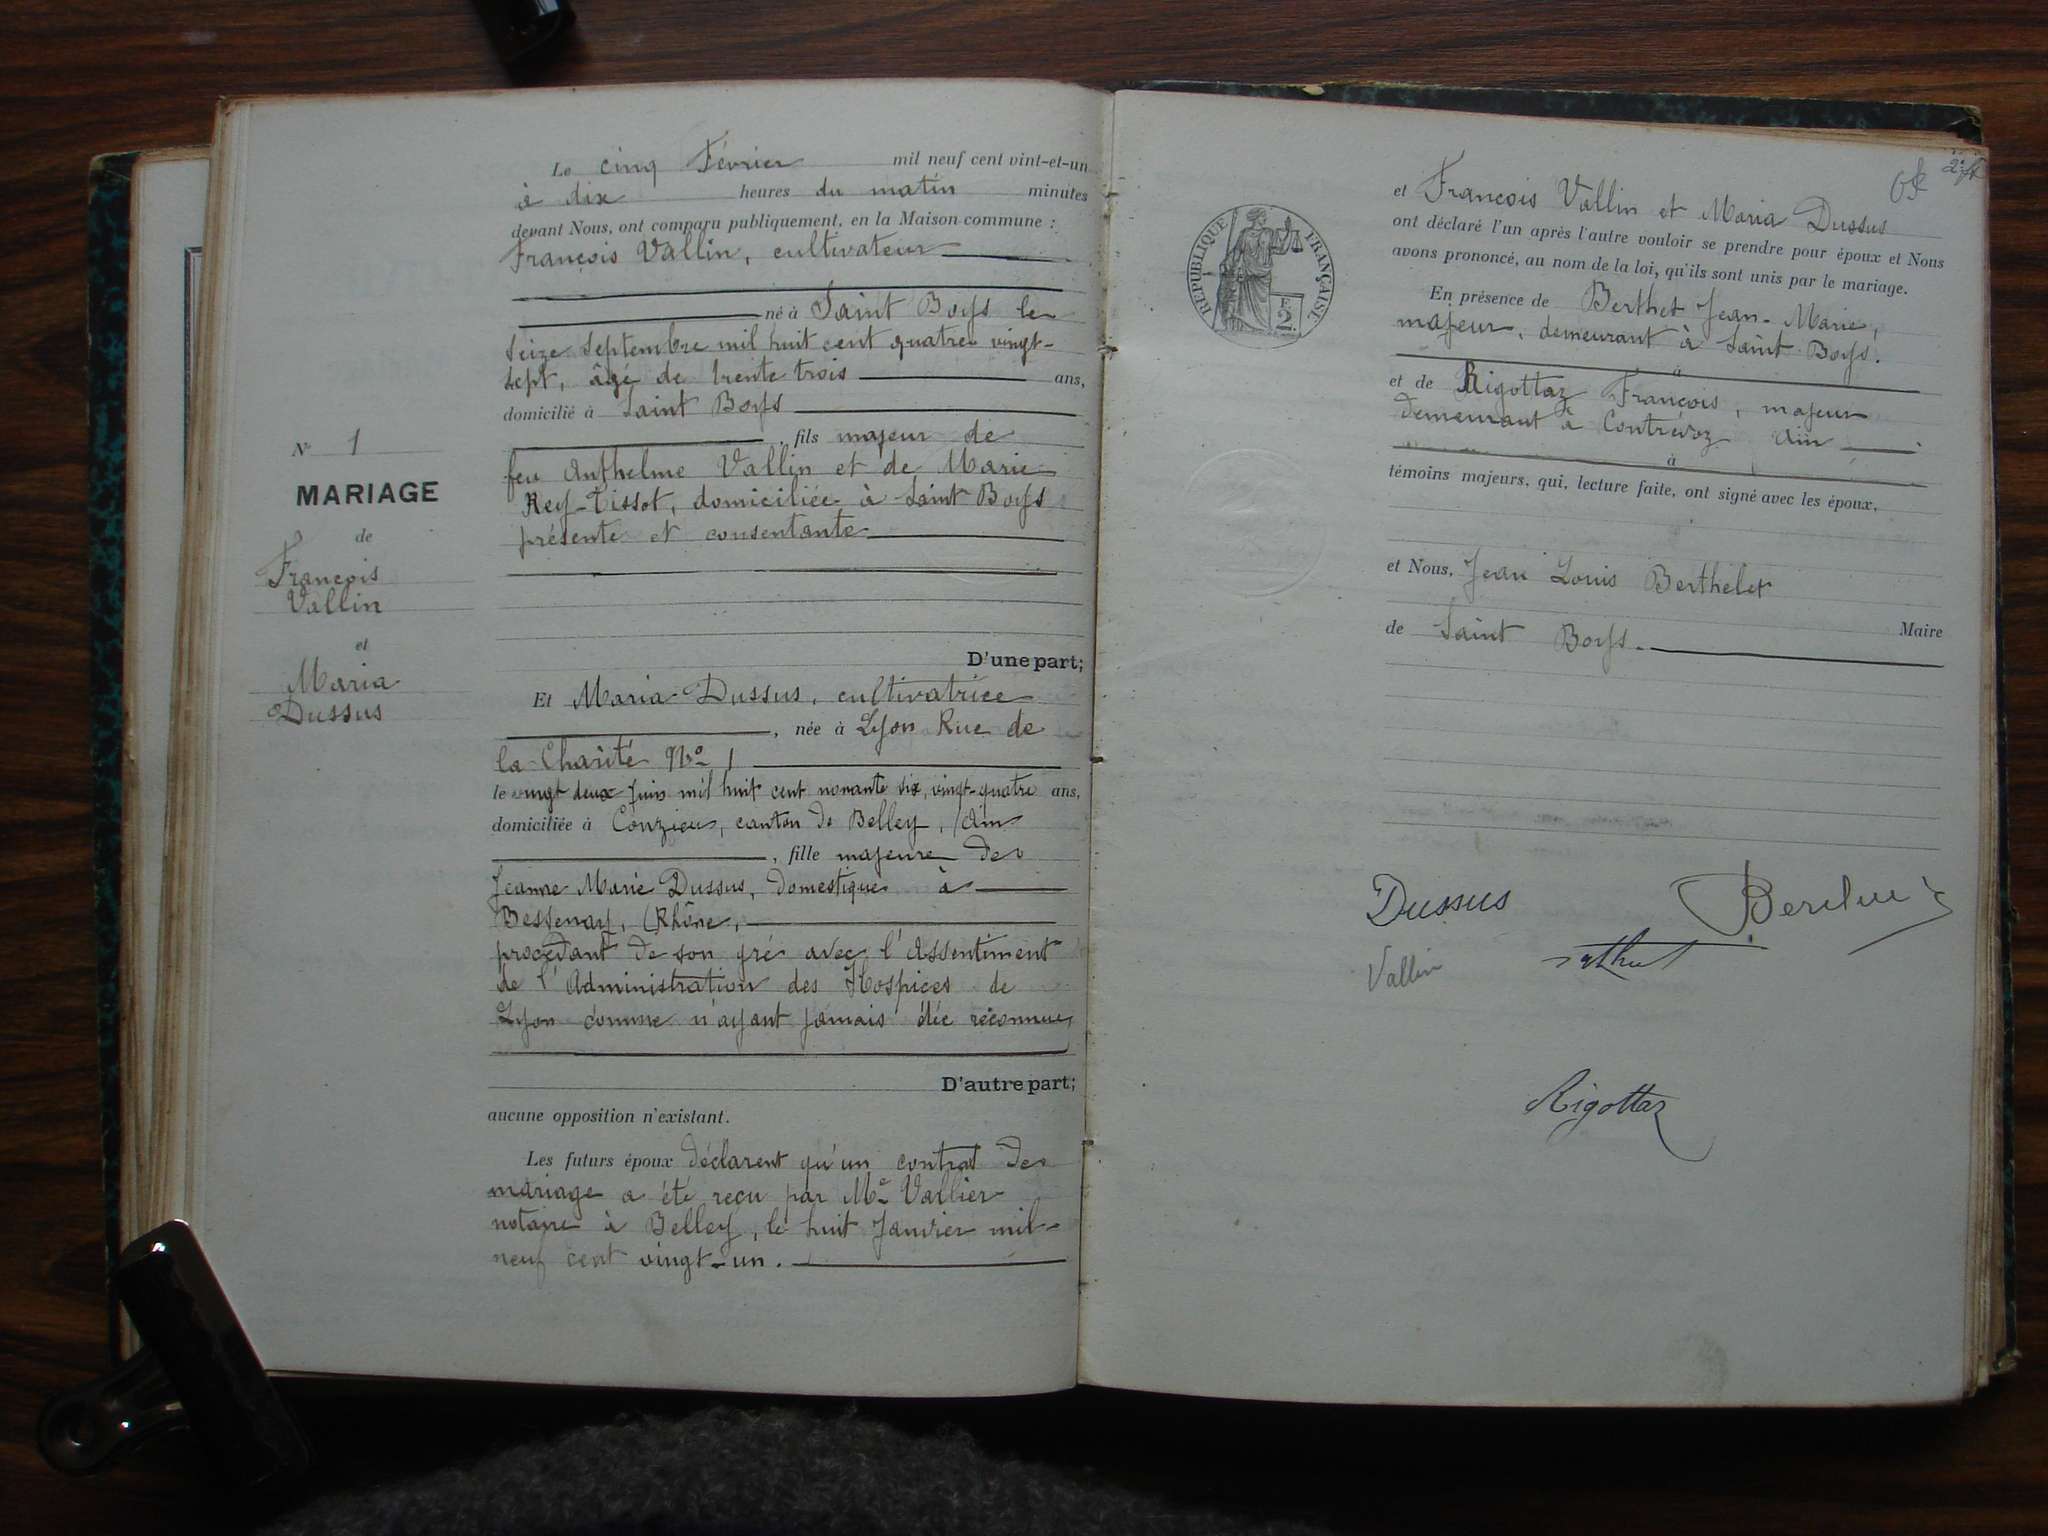 Le cinq Février mil neuf cent vint-et-un
à dix heures du matin minutes
devant Nous, ont comparu publiquement, en la Maison commune :
François Vallin, cultivateur
né à Saint Boys le
seize septembre mil huit cent quatre vingt-
sept, âgé de trente trois ans,
domicilié à Saint Boys
, fils majeur de
feu Anthelme Vallin et de Marie
Rey-Tissot, domiciliée à Saint Boys
présente et consentante
N° 1
MARIAGE
de
François
Vallin
et
Maria
Dussus
D'une part;
Et Maria Dussus, cultivatrice
, née à Lyon Rue de
la Charité No 1
le vingt deux Juin mil huit cent nonante six, vingt-quatre ans,
domiciliée à Conzieu, canton de Belley, Ain
, fille majeure de
Jeanne Marie Dussus, domestique à
Bessenay, (Rhône,
procédant de son gré avec l'Assentiment
de l'Administration des Hospices de
Lyon comme n'ayant jamais été reconnue,
D'autre part;
aucune opposition n'existant.
Les futurs époux déclarent qu'un contrat de
mariage a été reçu par Me Vallier
notaire à Belley, le huit Janvier mil-
neuf cent vingt-un.
ok
RÉPUBLIQUE FRANÇAISE
2
et François Vallin et Maria Dussus
ont déclaré l'un après l'autre vouloir se prendre pour époux et Nous
avons prononcé, au nom de la loi, qu'ils sont unis par le mariage.
En présence de Berthet Jean-Marie,
majeur, demeurant à Saint Boys.
à
et de Rigottaz François, majeur
demeurant à Contrevoz Ain
à
témoins majeurs, qui, lecture faite, ont signé avec les époux,
et Nous, Jean Louis Berthelet
Maire
de Saint Boys.
Dussus
Vallin
Rigottaz